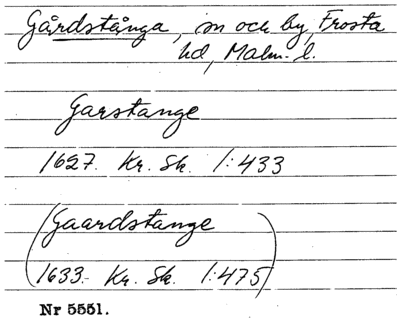 Gårdstånga, sn och by, Frosta
hd, Malm. l.
Garstange
1627. Kr. Sk. 1:433
(Gaardstange
1633.- Kr. Sk. 1:475)
Nr 5551.